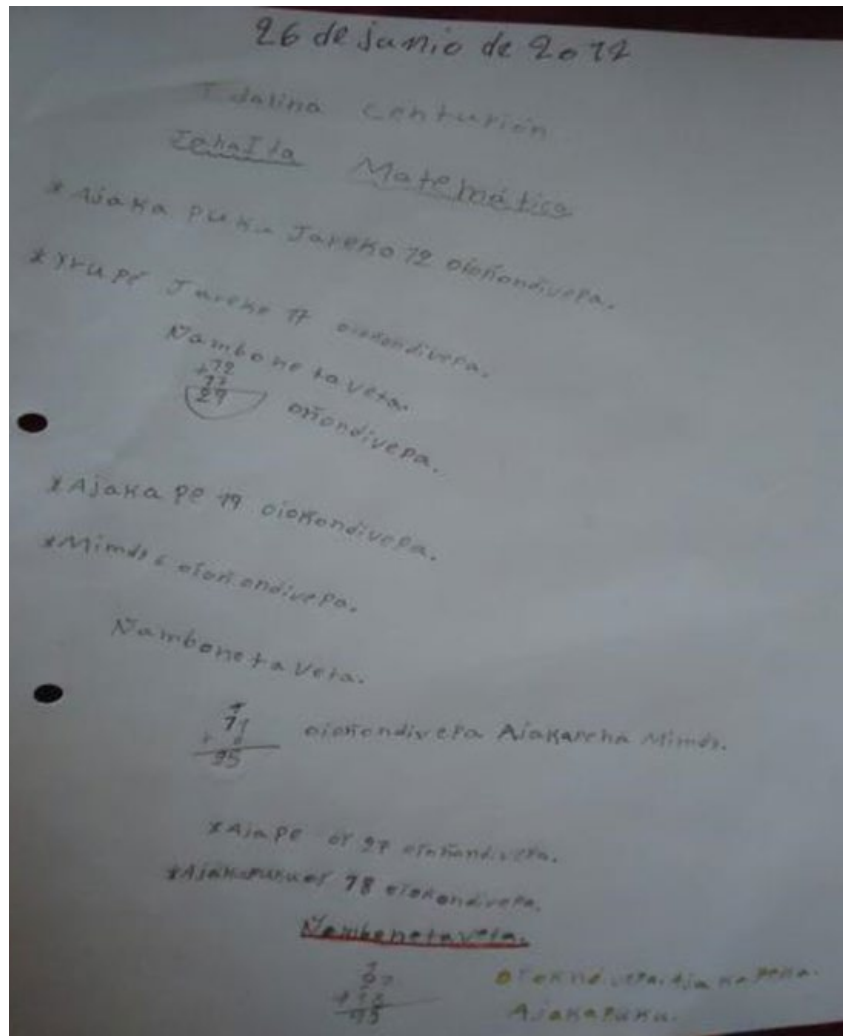 26 de junio de 2012
Idalina Centurión
Matemática
* Ajaka puku Jareko 12 oioñondivepa.
* Yrupe Jareko 17 oioñondivepa.
Ñambonetaveta.
+12
17
29 oñondivepa.
* Ajaka pe 19 oioñondivepa.
* Mimdy 6 oioñondivepa.
Ñambonetaveta.
+
oioñondivepa Ajakapeha Mimdy.
* Ajape oy 97 oioñondivepa.
* Ajakapukuoy 78 oioñondivepa.
Ñambonetaveta.
Ajakapuku.